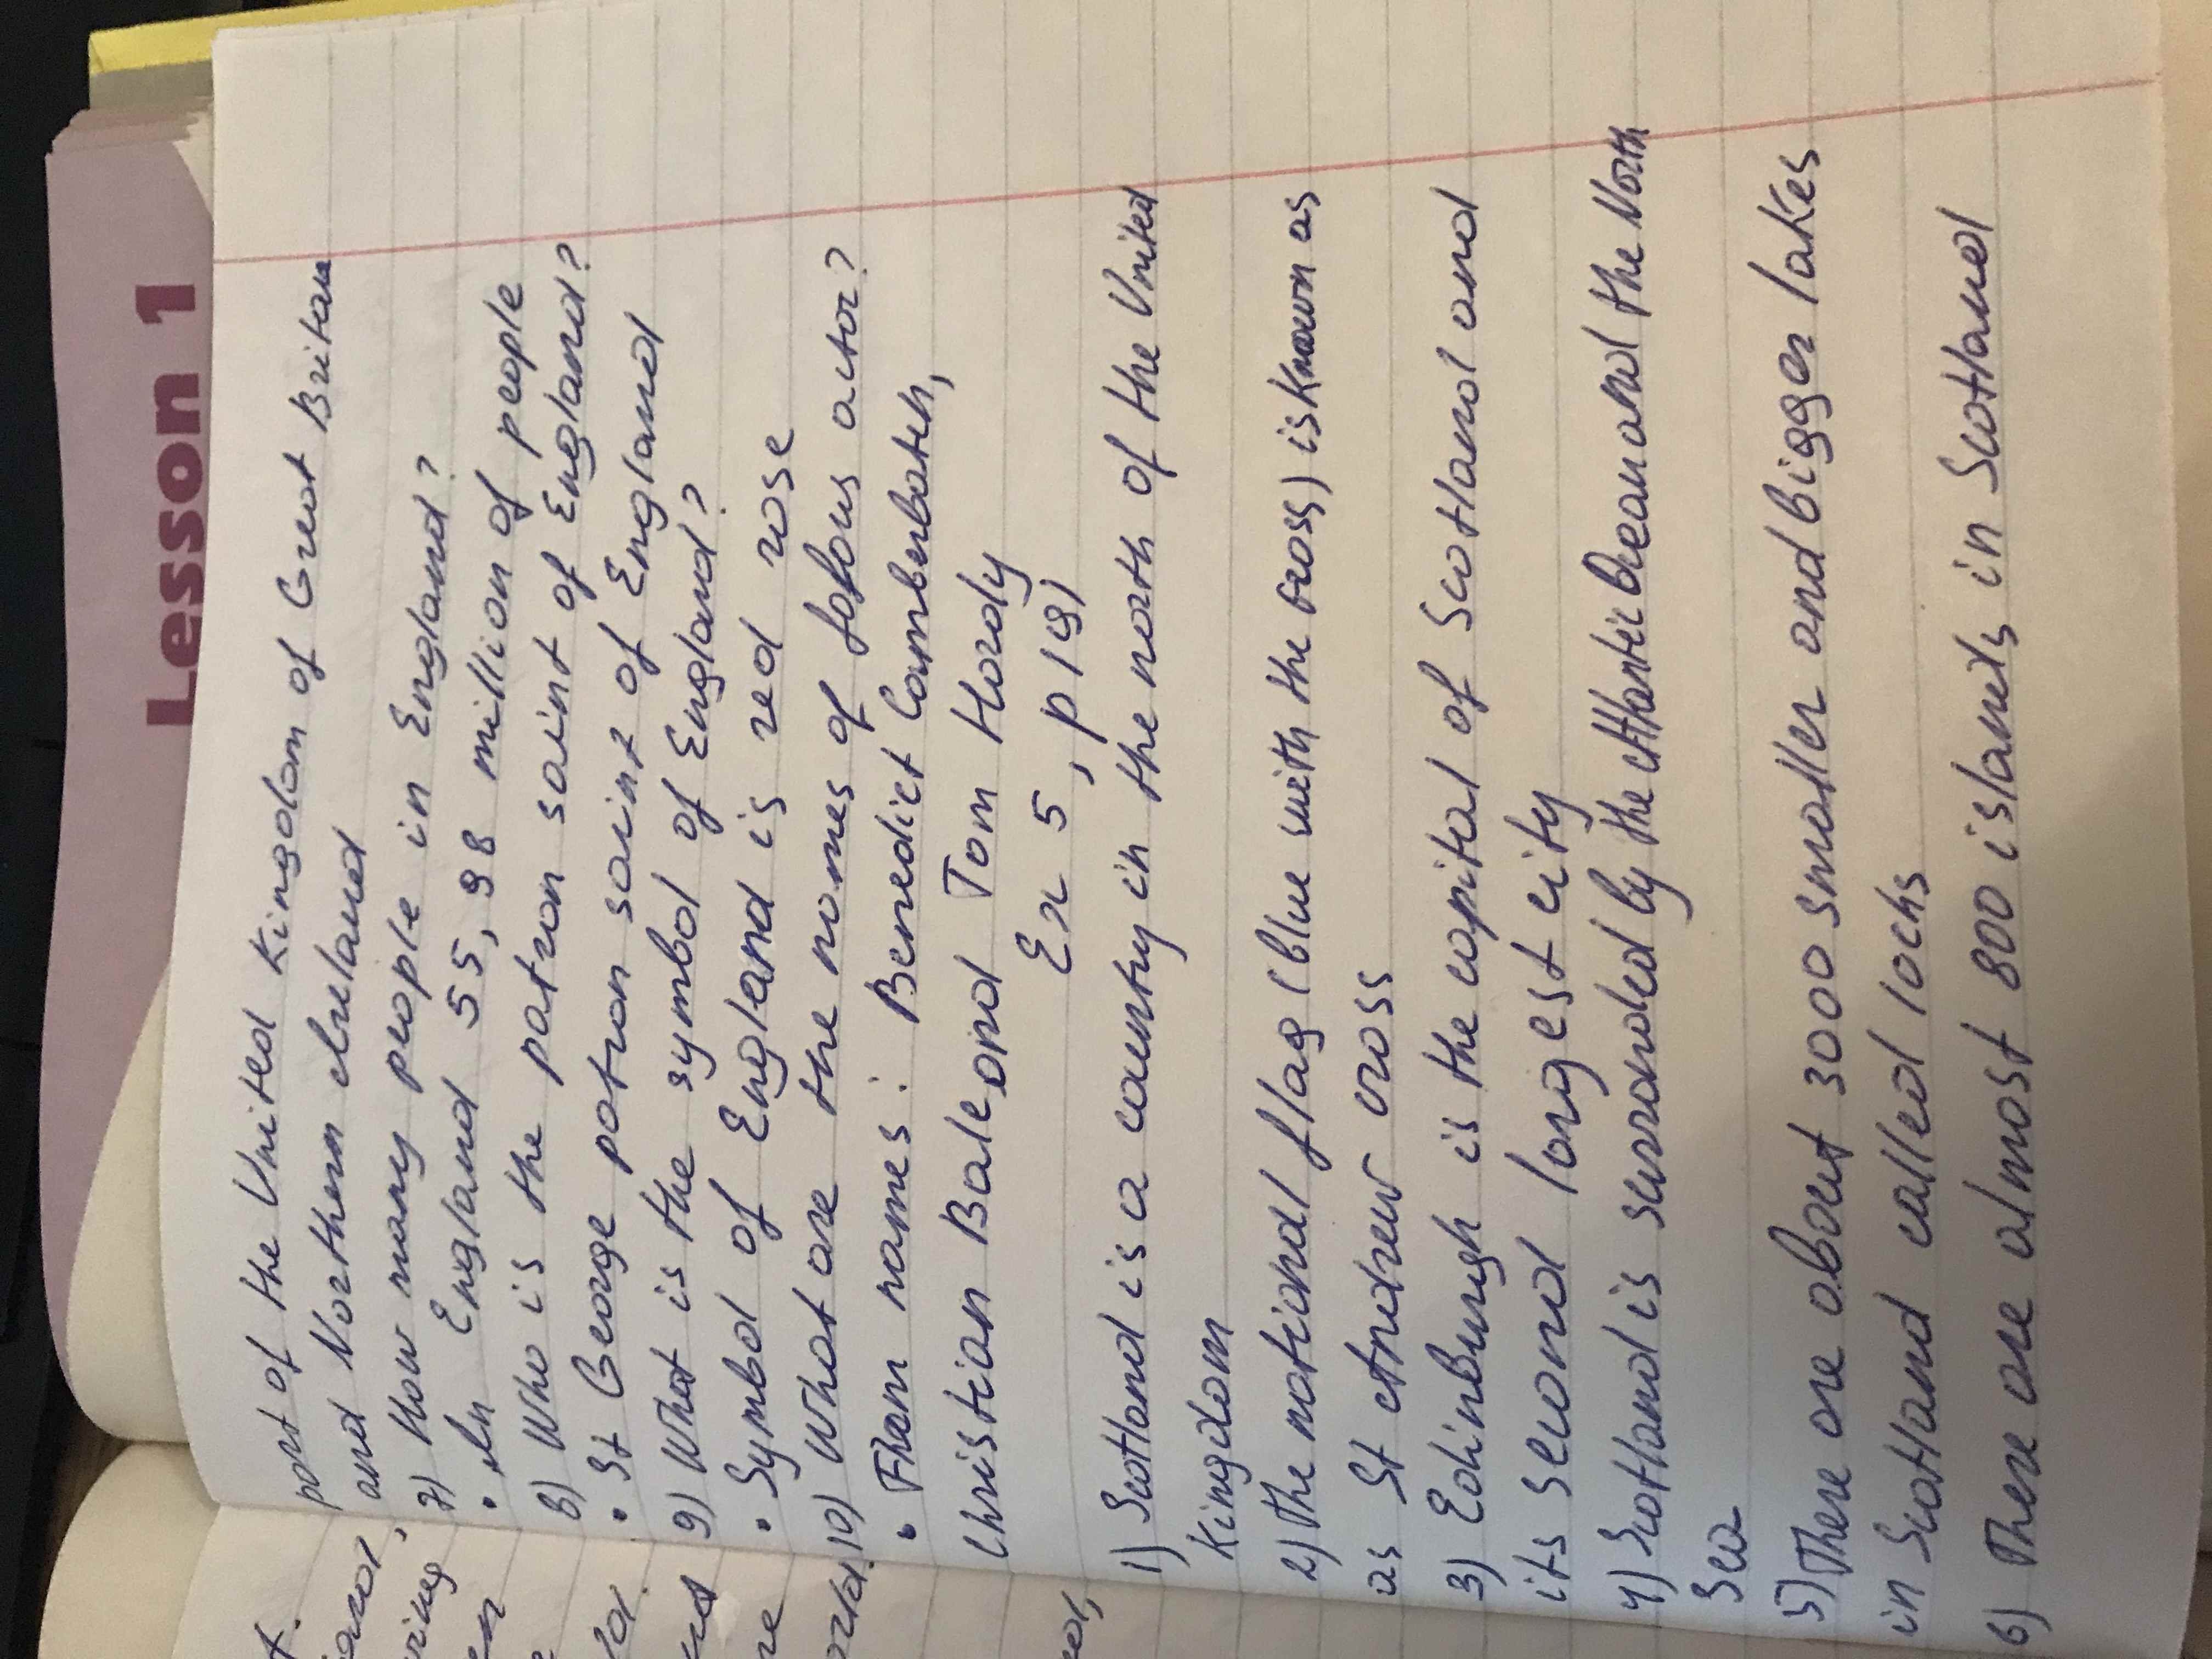 Lesson 1
part of the United Kingdom of Great Britain
and Northern Ireland
7) How many people in England?
• In England 55,98 million of people
8) Who is the patron saint of England?
• St George patron saint of England
9) What is the symbol of England?
• Symbol of England is red rose
10) What are the names of fofous actor?
• Them names: Benedict Camberbatch,
Christian Bale, and Tom Hardy
Ex 5, p 191
1) Scotland is a country in the north of the United
Kingdom
2) The national flag (blue with the cross) is known as
as St Andrew cross
3) Edinburgh is the capital of Scotland and
its second longest city
4) Scotland is surronded by the Atlantic Ocean and the North
Sea
5) There are about 3000 smaller and bigger lakes
in Scotland called lochs
6) There are almost 800 islands in Scotland